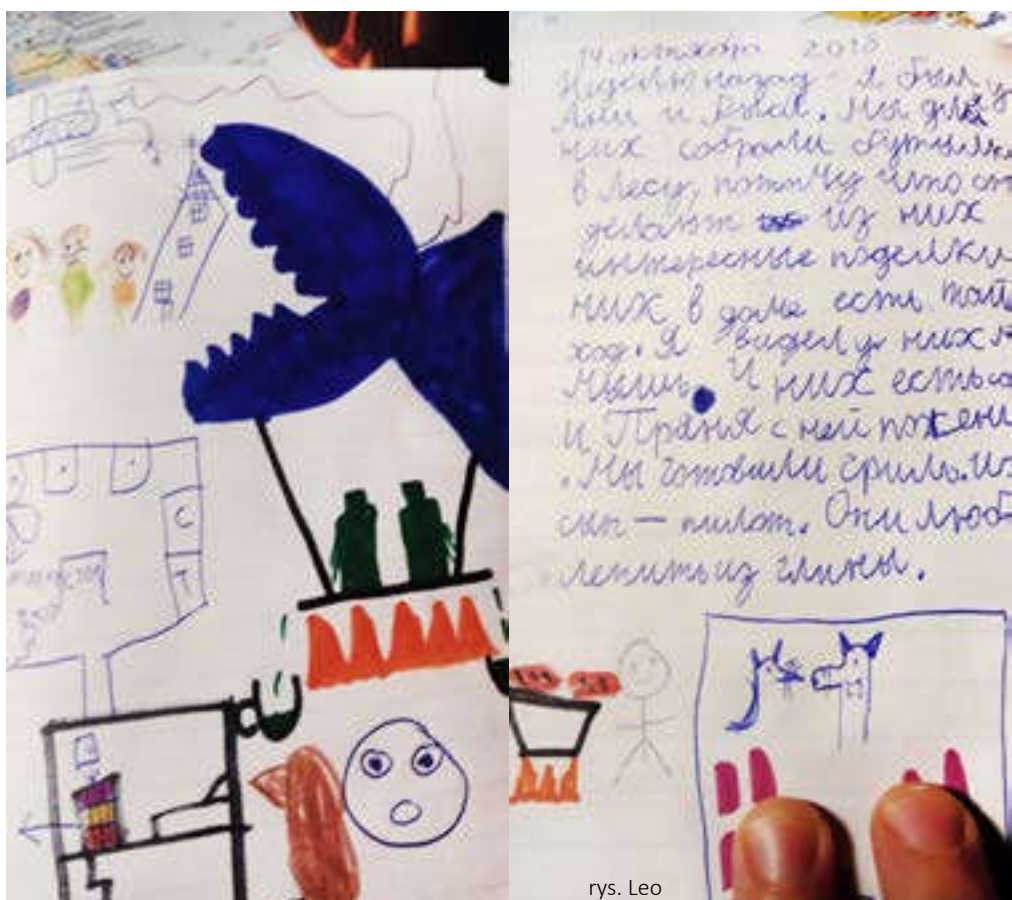 14 октября 20
Неделю назад я был у
Ани и . Мы для
них собрали бутылки
в лесу, потому что он
делают из них
интересные поделки
них в доме есть тай
ход. Я видел у них
мышь. И них есть
и Праня с ней пожени
. Мы готовили гриль. Их
сын — пилот. Они люб
лепить из глины.
С
Т
rys. Leo